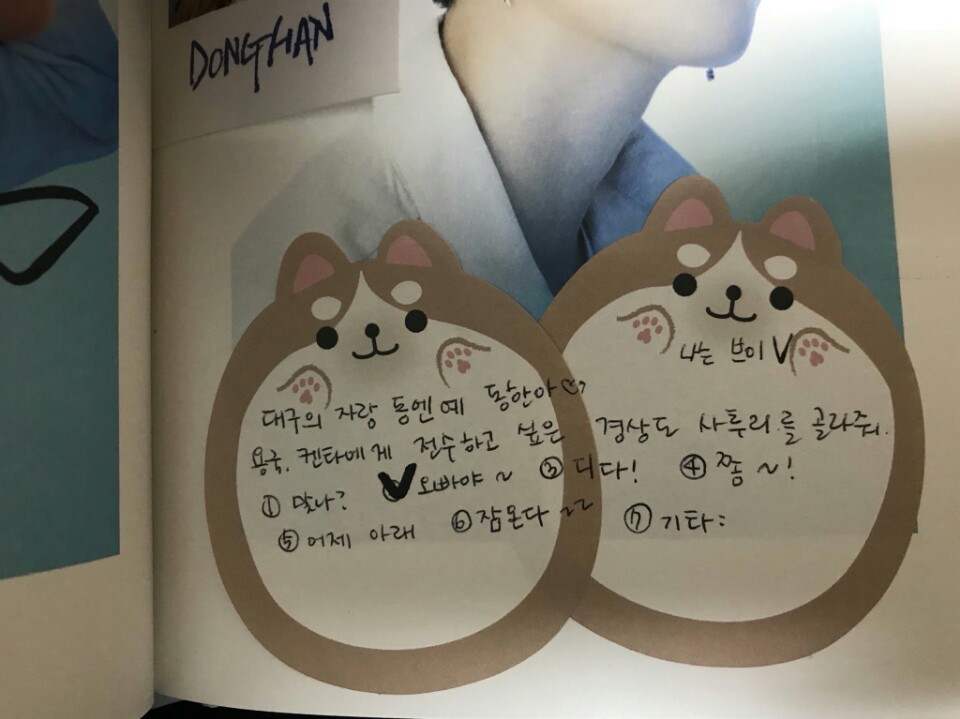 DONGHAN
나는 브이 V
대구의 자랑 동엔예 동한아
용국, 켄타에게 전수하고 싶은 경상도 사투리를 골라줘.
① 맞나? ✔오빠야~ ③ 디다! ④ 쫌~!
⑤ 어제 아래 ⑥ 잠온다~~ ⑦ 기타: